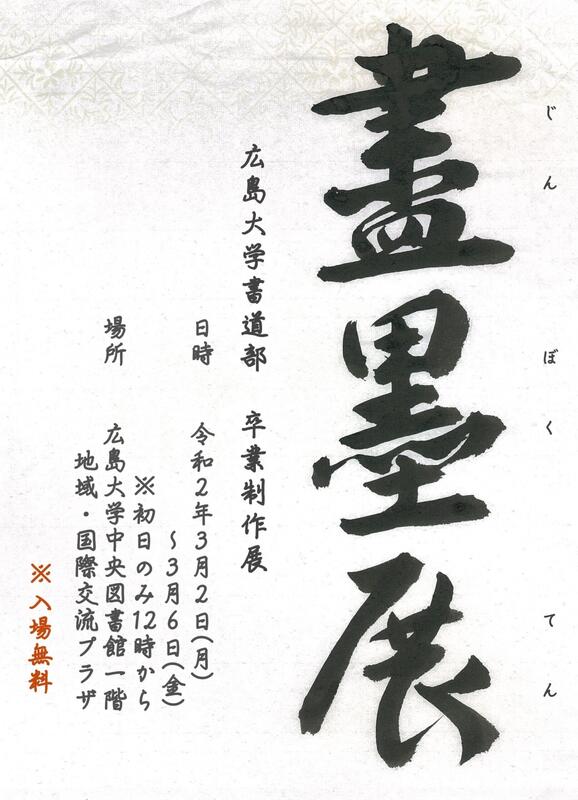 盡墨展
じんぼくてん
広島大学書道部 卒業制作展
日時 令和2年3月2日(月)
~3月6日(金)
※初日のみ12時から
場所 広島大学中央図書館一階
地域・国際交流プラザ
※入場無料